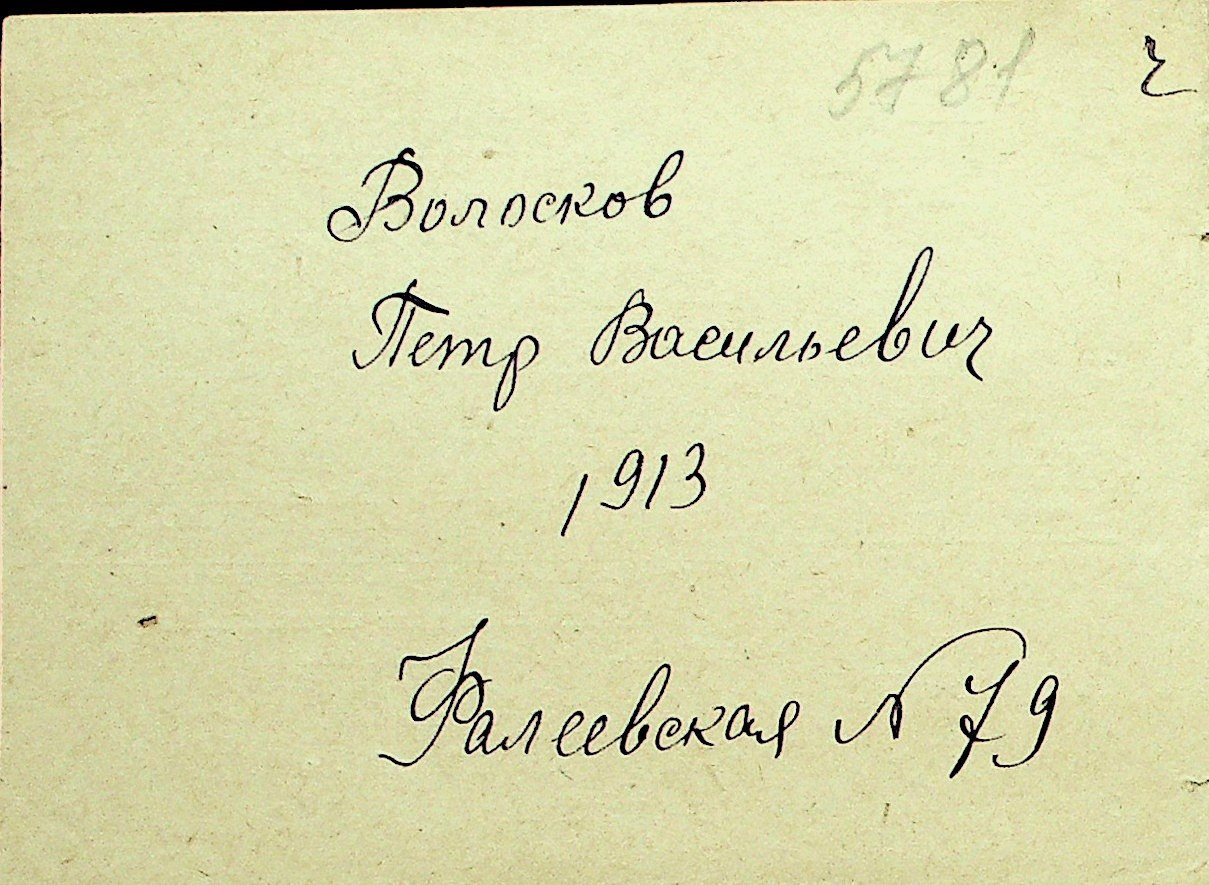 5781
Волосков
Петр Васильевич
1913
Фалеевская N 79